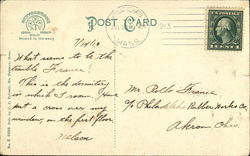 POST CARD
MASS.
213
Printed in Germany
7/19/13
What seems to be the
trouble France?
This is the dormitory
in which I room. Have
put a cross over my
window on the first floor.
Nelson
Mr Pelle France
c/o Philadelphia Rubber Works Co.
Akron Ohio.